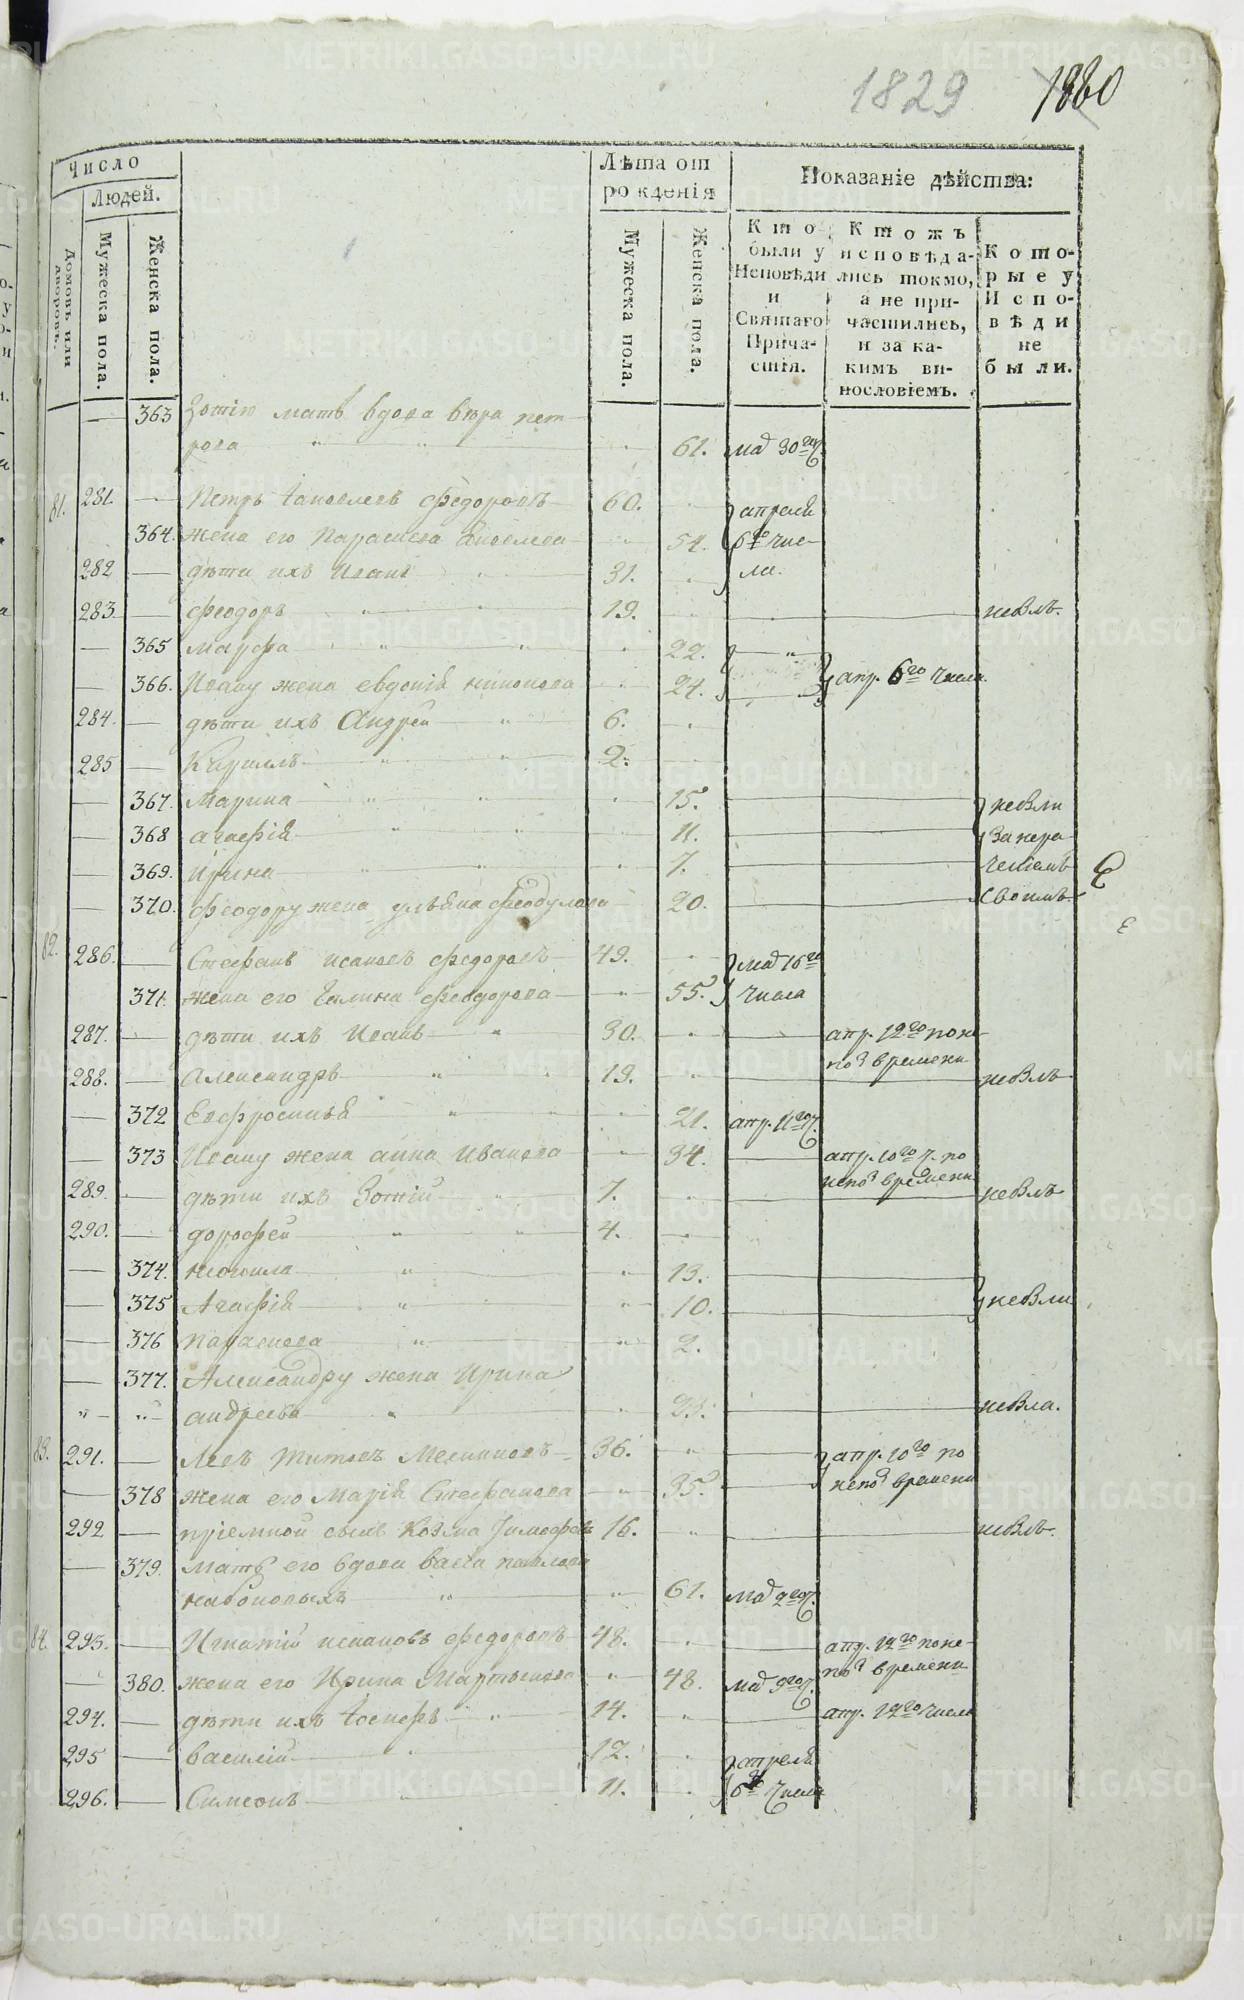 1829 1880
Число
Людей.
Домовъ или дворовъ.
Мужеска пола.
Женска пола.
Лѣта отъ рожденія
Мужеска пола.
Женска пола.
Показаніе дѣйства:
Кто были у Исповѣди и Святаго Причастія.
Ктожъ исповѣдались токмо, а не причастились, и за какимъ винословіемъ.
Которые у Исповѣди не были.
363 Зотію мать вдова вѣра пет
рова 61. маія 30го ч.
81. 281. Петръ федоровъ 60. апреля
364. жена его Параскева 54. 6го чис-
282 дѣти ихъ Иванъ 31. ла.
283 феодоръ 19. небылъ.
365 марфа 22.
366. Ивану жена евдокія 24. апр. 6го числа
284. дѣти ихъ Андрей 6.
285 Кириллъ 2.
367. Марина 15. небыли
368 агафія 11. за нера
369. Ирина 7. чениемъ
370. феодору жена ульяна феодулова 20. своимъ
82. 286. Стефанъ исаковъ федоровъ 49. маія 16го
371. жена его Галина феодорова 55. числа
287. дѣти ихъ Иванъ 30. апр. 12го по не
288. Александръ 19. по времени небылъ
372 Евфросинья 21. апр. 11го ч.
373 Ивану жена анна Иванова 34. апр. 10го ч. по
289. дѣти ихъ Зотій 7. времени небылъ
290. дорофей 4.
374. 13.
375 Агафія 10. небыли
376 параскева 2.
377. Александру жена Ирина
андреева 23. небыла.
83. 291. Левъ Титовъ 36. апр. 10го по
378 жена его Марія Стефанова 35. времени
292 пріемной сынъ Козма Тимофеевъ 16. небылъ.
379. мать его вдова павлова
61. маія 9го ч.
84. 293. Игнатій федоровъ 48. апр. 12го по не-
380. жена его Ирина Мартынова 48. маія 9го ч. по времени
294. дѣти ихъ Іосифъ 14. апр. 12го числа
295 василій 12. апреля
296. Симеонъ 11. 6го числа
METRIKI.GASO-URAL.RU